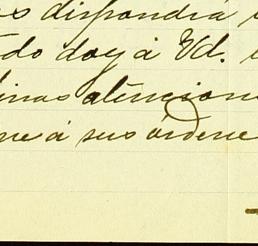 dispondrá
do doy á Vd.
finas atencion
me á sus órdene